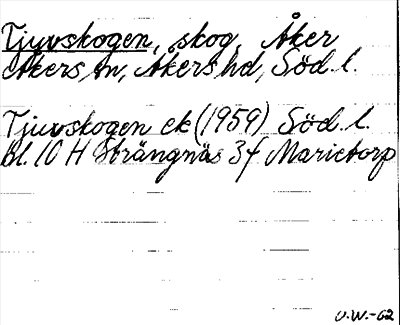 Tjuvskogen, skog, Åker
Åkers sn, Åkers hd, Söd. l.
Tjuvskogen ek (1959) Söd. l.
Bl. 10 H Strängnäs 3f Marietorp
O.W.-62